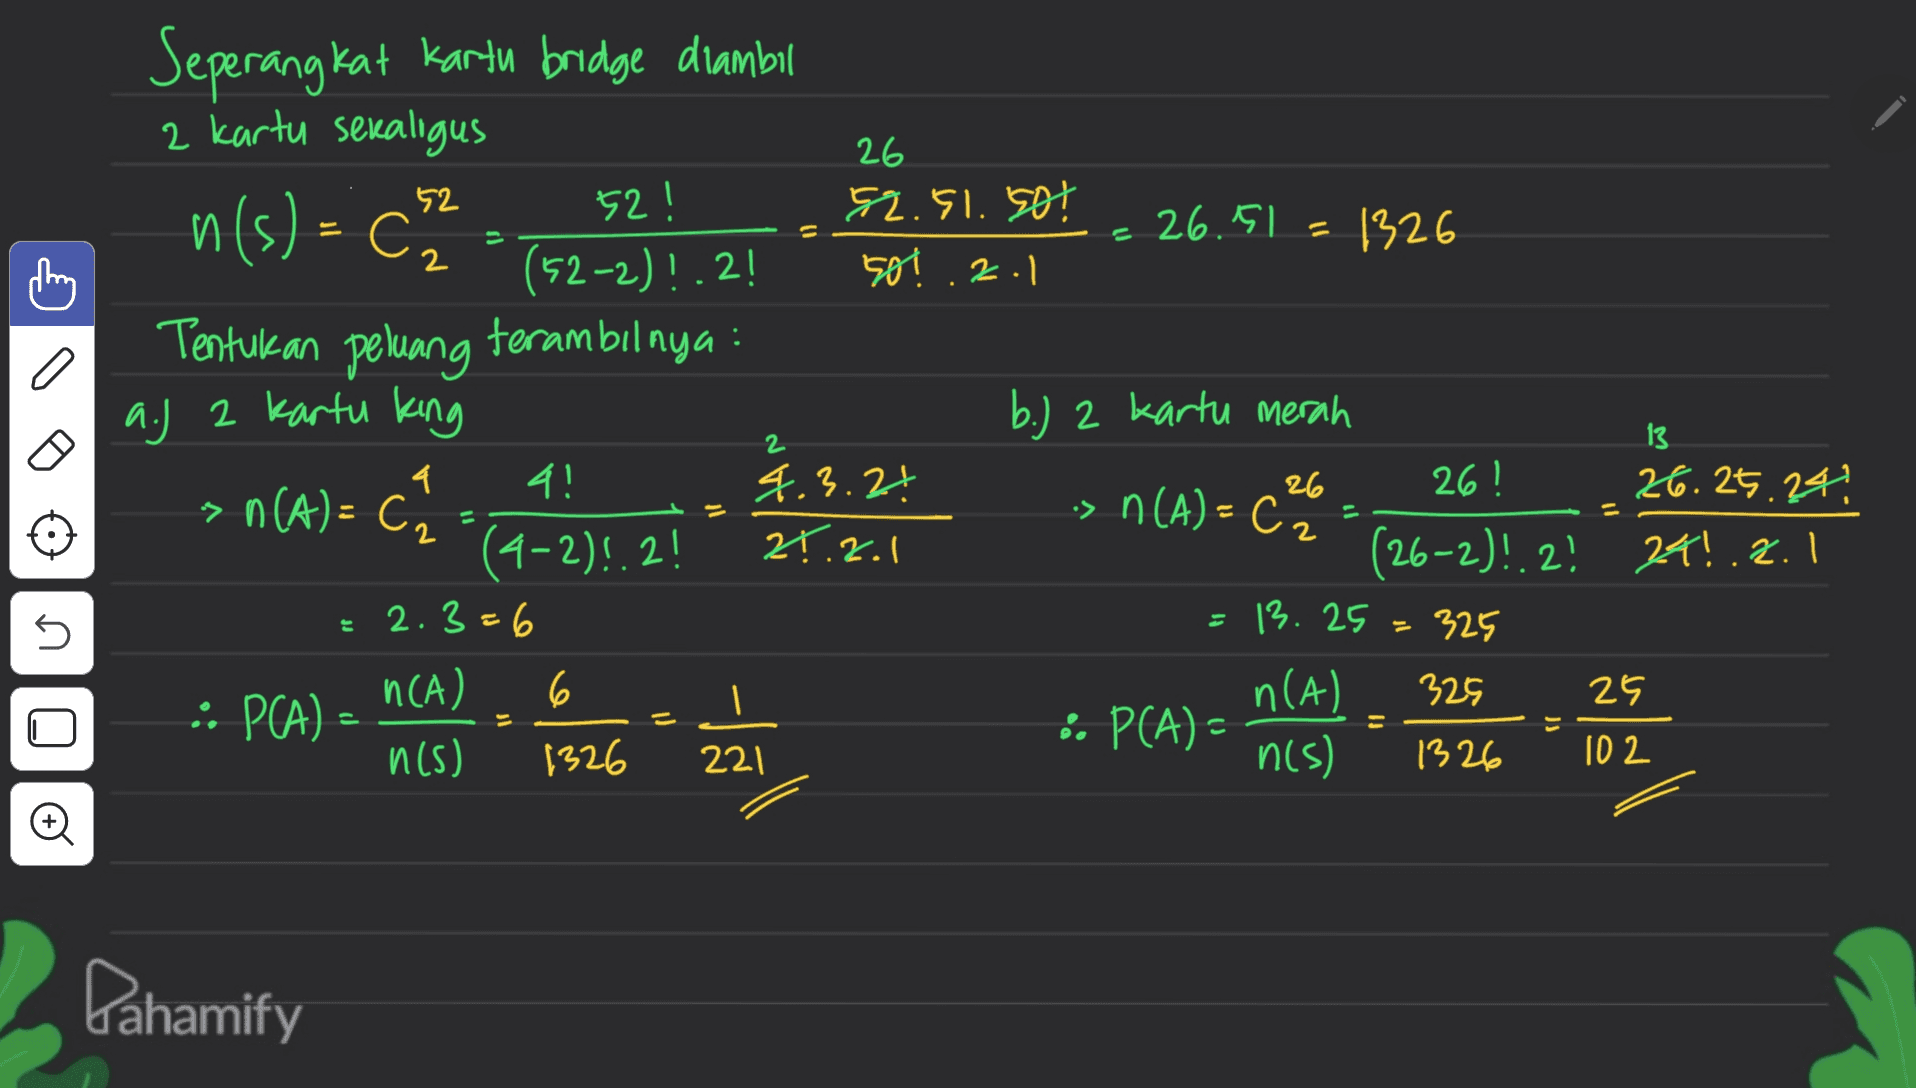 Seperangkat kartu bridge diambil
2 kartu sekaligus
n(s) = C₂⁵² = 52! / (52-2)!.2! = 52.51.50! / 50!.2.1 = 26.51 = 1326
26
Tentukan peluang terambilnya :
a.) 2 kartu king
> n(A) = C₂⁴ = 4! / (4-2)!.2! = 4.3.2! / 2!.2.1
2
= 2.3 = 6
∴ P(A) = n(A) / n(s) = 6 / 1326 = 1 / 221
b.) 2 kartu merah
> n(A) = C₂²⁶ = 26! / (26-2)!.2! = 26.25.24! / 24!.2.1
13
= 13.25 = 325
∴ P(A) = n(A) / n(s) = 325 / 1326 = 25 / 102
Pahamify